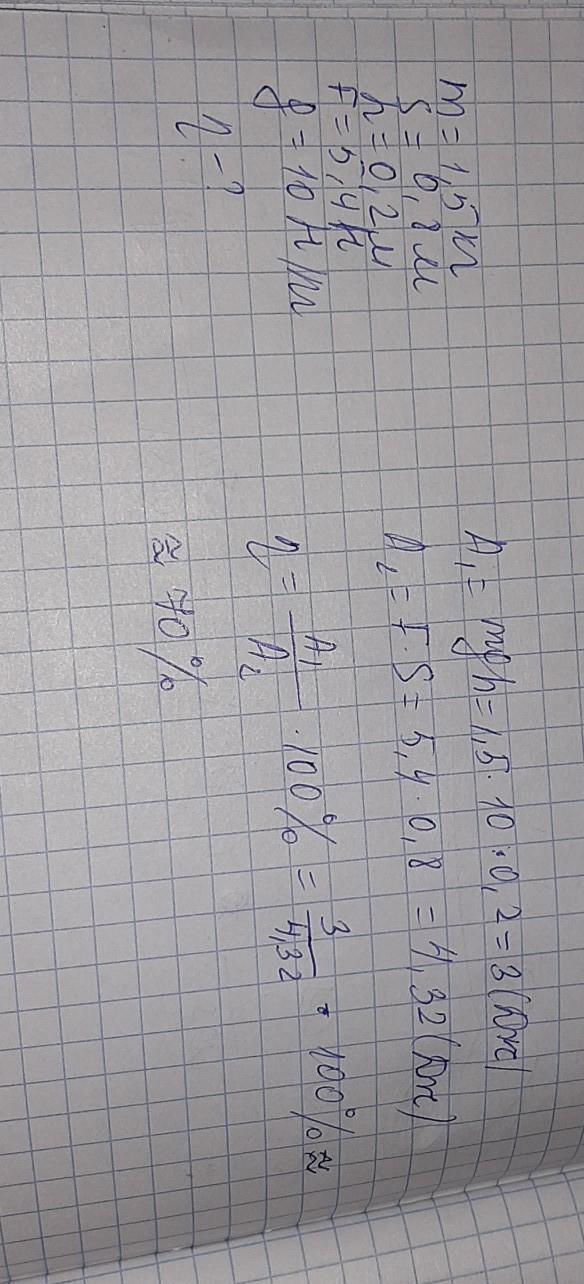 m = 1,5 кг
S = 0,8 м
h = 0,2 м
F = 5,4 Н
g = 10 Н/кг
η - ?
A₁ = mgh = 1,5 · 10 · 0,2 = 3 (Дж)
A₂ = F · S = 5,4 · 0,8 = 4,32 (Дж)
η = A₁/A₂ · 100% = 3/4,32 · 100% ≈
≈ 70%